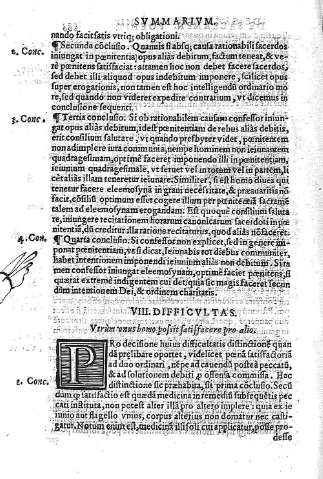 SVMMARIVM.
nando facisfatis vtriq; obligationi.
2. Conc. ¶ Secunda cōclusio. Quamuis si absq; causa rationabili sacerdos
iniungat in pœnitentia opus aliàs debitum, factum tenet, & ve-
rè pœnitens satisfaciat: attamen hoc non debet facere sacerdos,
sed debet illi aliquod opus indebitum imponere, scilicet opus
super erogationis, non tamen est hoc intelligendū ordinario mo
re, sed quando non videret expedire contrarium, vt dicemus in
conclusione sequenti.
3. Conc. ¶ Tertia conclusio. Si ob rationabilem causam confessor iniun-
gat opus aliàs debitum, id est pœnitentiam de rebus aliàs debitis,
erit consilium salutare, vt quando presbyter videt, pœnitentem
non adimplere iura communia, nempe hominem non ieiunantem
quadragesimam, optimè faceret imponendo illi in pœnitentiam,
ieiunium quadragesimale, vt seruet vel in totum vel in partem, li
cèt aliàs illam teneretur ieiunare. Similiter, si est homo diues qui
tenetur facere eleemosynā in graui necessitate, & præuaritatis nō
facit, cōsiliū optimum esset cogere illum per pœnitentiā sacramē
talem ad eleemosynam erogandam. Est quoque consilium saluta
re, iniungere recitationem horarum canonicarum sacerdoti in pœ
nitentiā, ūt creditur illa ratione recitaturus, quod aliàs nō faceret.
4. Con. ¶ Quarta conclusio. Si confessor non explicet, sed in genere im-
ponat pœnitentiam, vt si dicat, Ieiunabis tot diebus communiter,
habet intentionem imponendi ieiunium aliàs non debitum. Si ta
men confessor iniungat eleemosynam, optimè faciet pœnitens, si
quærat extremè indigentem cui det, quia sic magis faceret secun
dum intentionem Dei, & ordinem charitatis.
VIII. DIFFICVLTAS.
Vtrum vnus homo possit satisfacere pro alio.
PRo decisione huius difficultatis distinctionē quan
dā prælibare oportet, videlicet pœnā satisfactoriā
ad duo ordinari, nēpe ad cauendū posteà peccatū,
& ad solutionem debiti p offensa commissa. Hoc
1. Conc. distinctione sic præhabita, sit prima cōclusio. Secū
dam q satisfactio est quædā medicina in remediū subsequētis pec
cati instituta, non potest alter illā pro altero implere: quia ex ie
iunio aut flagello vnius, corpus alterius non domatur nec casti-
gatur. Notum enim est, medicinā illi soli cui applicatur, posse pro-
desse